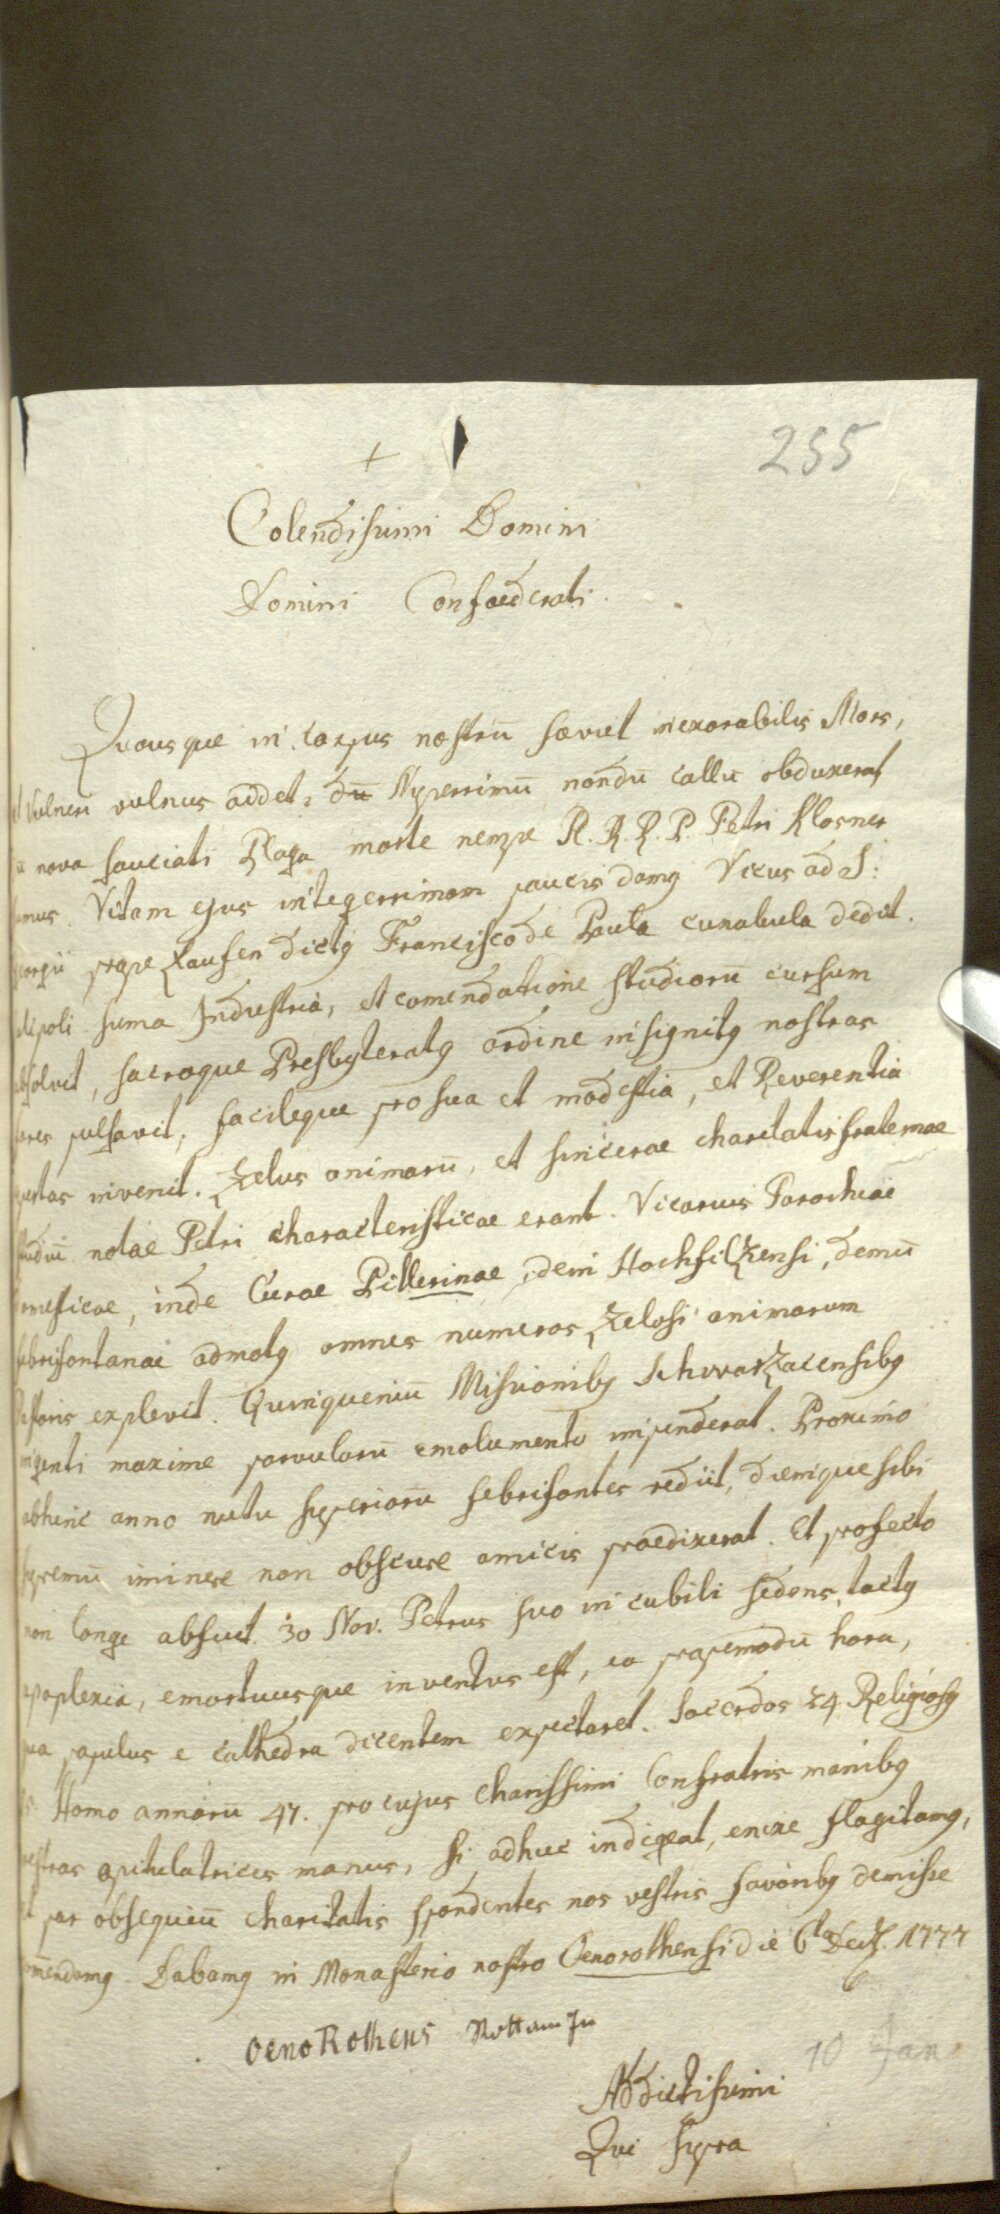 255
+
Colendissimi Domini
Domini Confoederati.
Quousque in corpus nostrū saeviet inexorabilis Mors,
Vulneri vulnus addet? dū Nuperrimū nondū callū obduxerat
nova sauciati Plaga morte nempe R. R. R. P. Petri Klosner
Vitam ejus integerrimam paucis damg Vicus ad S:
prope Laufen dictg Francisco de Paula cunabula dedit.
suma Industria, et comendatione studiorū cursum
sacroque Presbyteratg ordine insignitg nostras
pulsavit, facileque pro sua et modestia, et Reverentia
invenit. Zelus animarū, et sincerae charitatis fraternae
notae Petri characteristicae erant. Vicarius Parochiae
inde Curae Pillerinae, dein Hochfilzensi, demū
admotg omnes numeros zelosi animarum
explevit. Quinqueniū Missionibg Schwarzacensibg
maxime parvulorū emolumento impenderat. Proximo
abhinc anno nutu superiorū febrifontes rediit, diemque sibi
supremū iminere non obscure amicis praedixerat. Et profecto
non longe abfuit. 30 Nov. Petrus suo in cubili sedens, tactg
apoplexia, emortuusque inventus est, ea propemodū hora,
qua populus e cathedra dicentem expectaret. Sacerdos 24 Religiosg
Homo annorū 47. pro cujus charissimi Confratris manibg
vestras opitulatrices manus, si adhuc indigeat, enixe flagitamg,
par obsequiū charitatis spondentes nos vestris favoribg demisse
Dabamg in Monasterio nostro Oenorothensi die 6ta Decb. 1777
Oeno Rothens Rott am In
10 Jan
Addictissimi
Qui supra